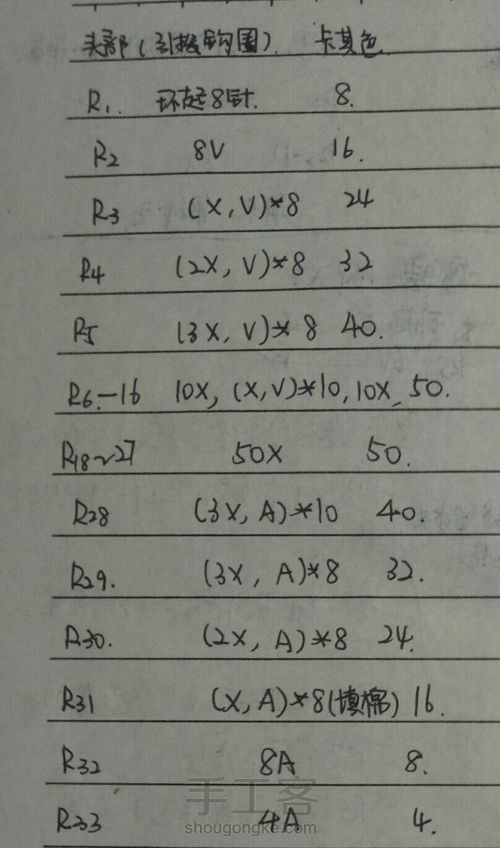 头部(引拔钩圈). 卡其色
R1. 环起8针. 8.
R2 8V 16.
R3 (X,V)*8 24
R4 (2X,V)*8 32
R5 (3X,V)*8 40.
R6.-16 10X,(X,V)*10,10X, 50.
R18~27 50X 50.
R28 (3X,A)*10 40.
R29. (3X,A)*8 32.
R30. (2X,A)*8 24.
R31 (X,A)*8(填棉) 16.
R32 8A 8.
R33 4A 4.
手工客
shougongke.com